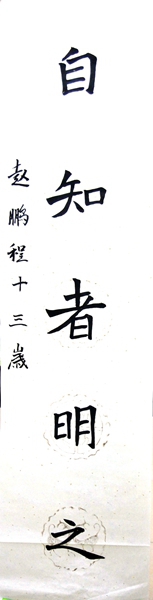 自知者明之
赵鹏程十三歲